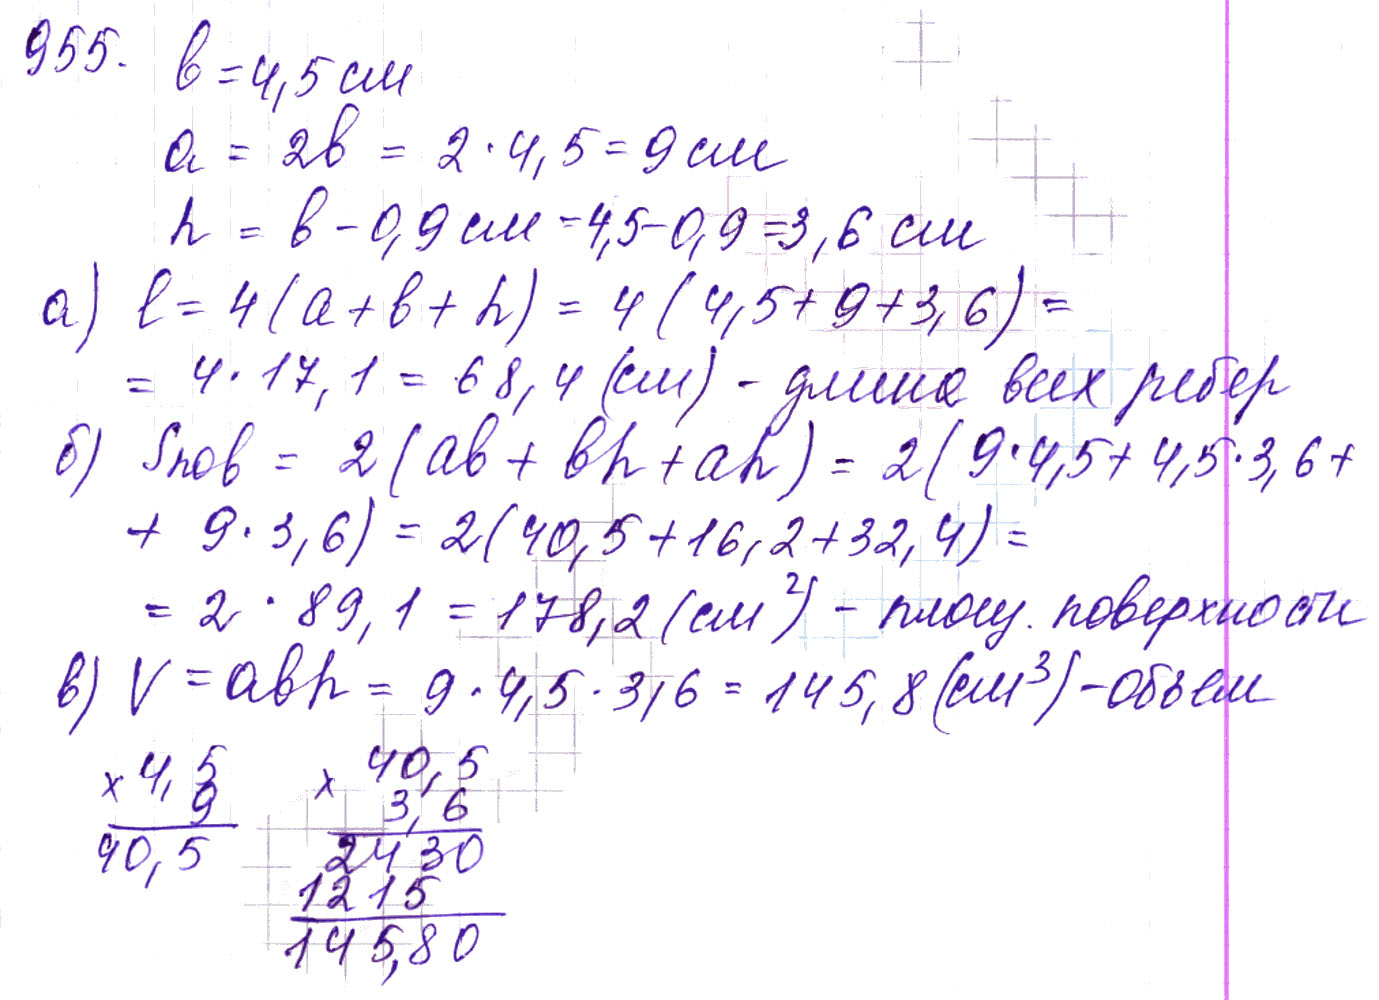 955. в = 4,5 см
a = 2в = 2 · 4,5 = 9 см
h = в - 0,9 см = 4,5 - 0,9 = 3,6 см
а) l = 4 (a + в + h) = 4 (4,5 + 9 + 3,6) =
= 4 · 17,1 = 68,4 (см) - длина всех ребер
б) Sпов = 2 (aв + вh + ah) = 2 (9 · 4,5 + 4,5 · 3,6 +
+ 9 · 3,6) = 2 (40,5 + 16,2 + 32,4) =
= 2 · 89,1 = 178,2 (см²) - площ. поверхности
в) V = aвh = 9 · 4,5 · 3,6 = 145,8 (см³) - объем
x 4,5
9
40,5
x 40,5
3,6
2430
1215
145,80